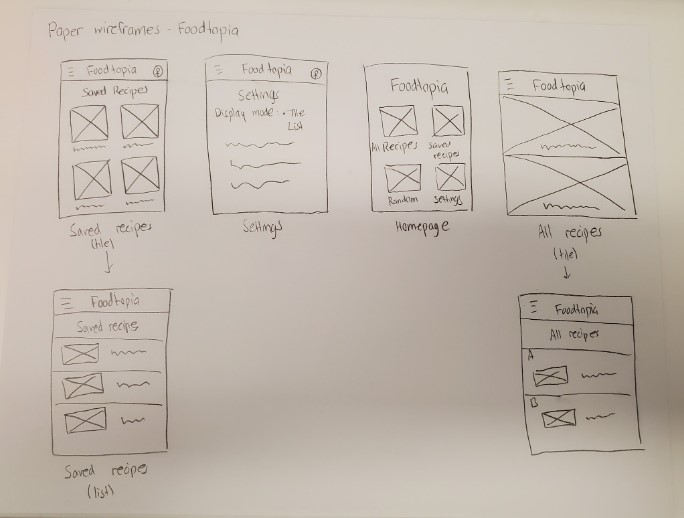 Paper wireframes - Foodtopia
Foodtopia
Saved Recipes
Saved recipes
(tile)
Foodtopia
Settings
Display mode: • Tile
List
Settings
Foodtopia
All Recipes
Saved
recipes
Random
Settings
Homepage
Foodtopia
All recipes
(tile)
Foodtopia
Saved recipes
Saved recipes
(list)
Foodtopia
All recipes
A
B